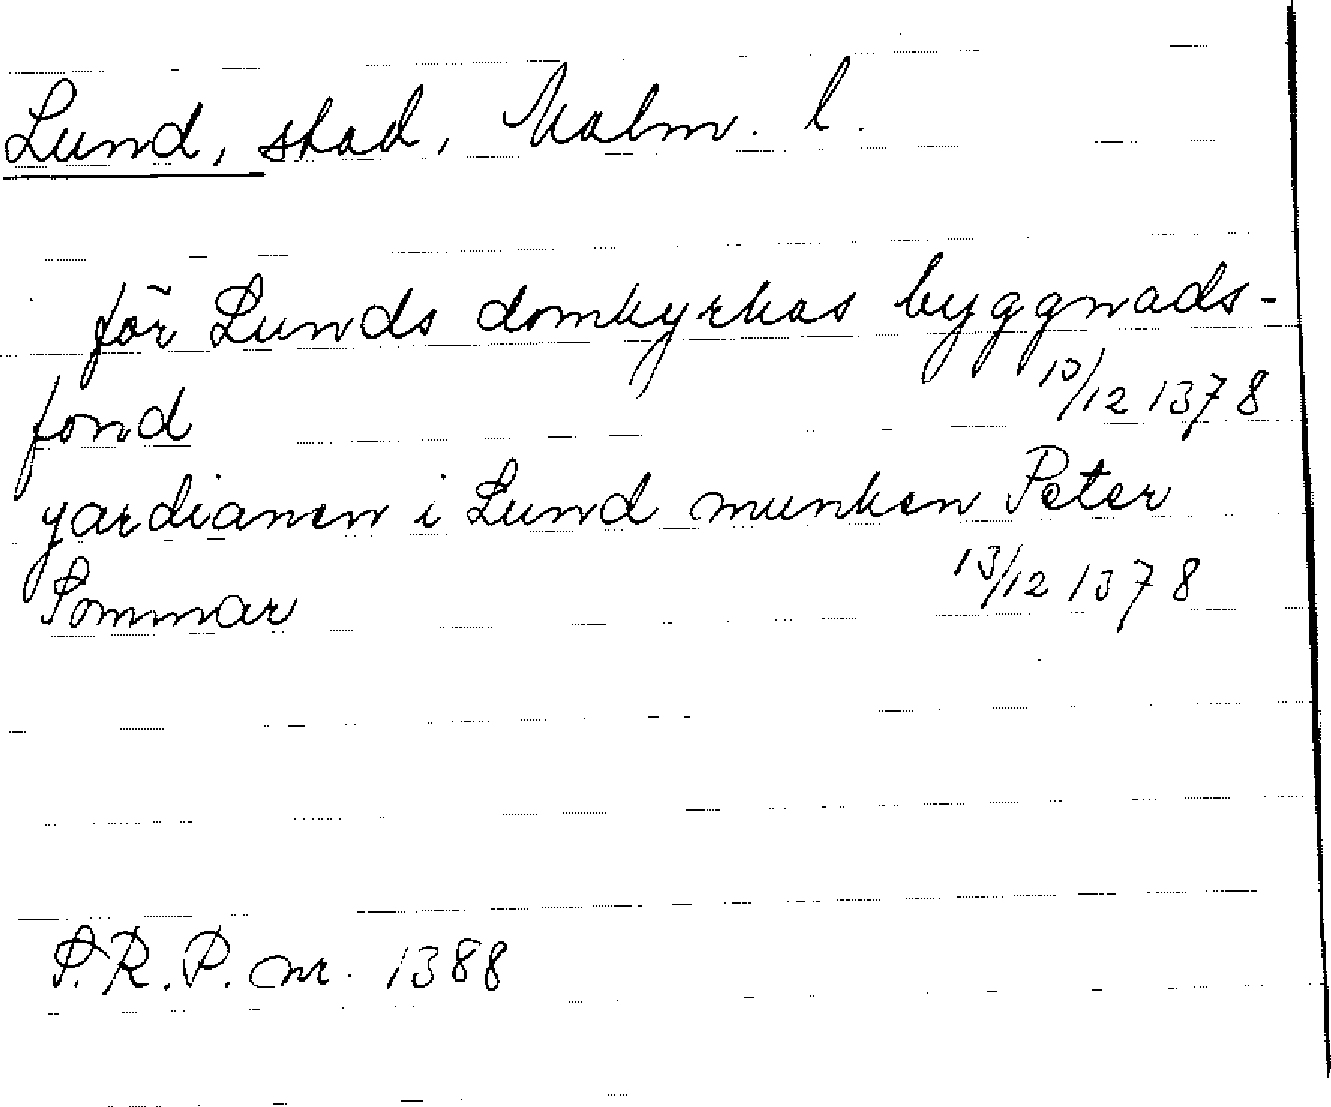 Lund, stad, Malm. l.
för Lunds domkyrkas byggnads-
fond 10/12 1378
gardianen i Lund munken Peter
Sommar 13/12 1378
S.R.P. nr. 1388